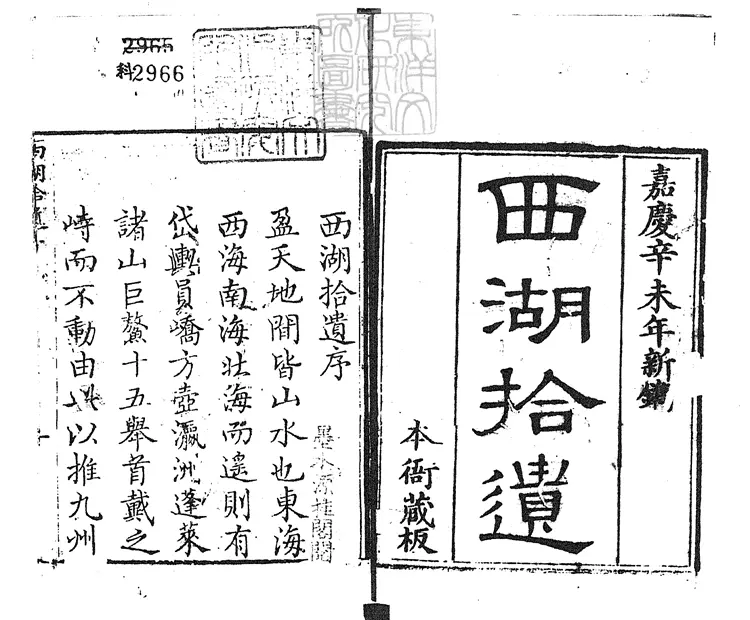 嘉慶辛未年新鐫
西湖拾遺
本衙藏板
2965
科2966
東洋文
化研究
所圖書
西湖拾遺序
盈天地間皆山水也東海
西海南海北海而遙則有
岱輿員嶠方壺瀛洲蓬萊
諸山巨鰲十五舉首戴之
峙而不動由此以推九州
西湖拾遺序